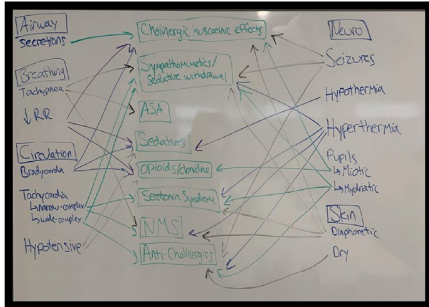 Airway
Secretions
Breathing
Tachypnea
↓RR
Circulation
Bradycardia
Tachycardia
↳narrow-complex
↳wide-complex
Hypotensive
Cholinergic muscarinic effects
Sympathomimetics/
Sedative withdrawal
ASA
Sedatives
Opioids/clonidine
Serotonin Syndrome
NMS
Anti-Cholinergics
Neuro
Seizures
Hypothermia
Hyperthermia
Pupils
↳Miotic
↳Mydriatic
Skin
Diaphoretic
Dry